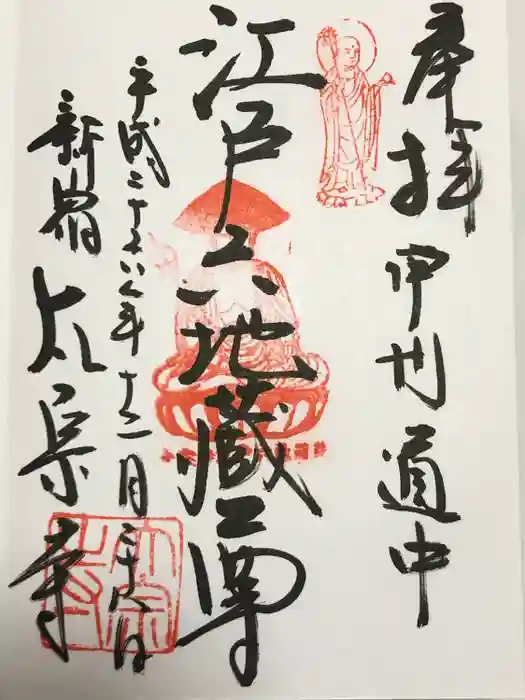 奉拝 甲州道中
江戸六地蔵尊
平成二十八年十二月二十八日
新宿 太宗寺